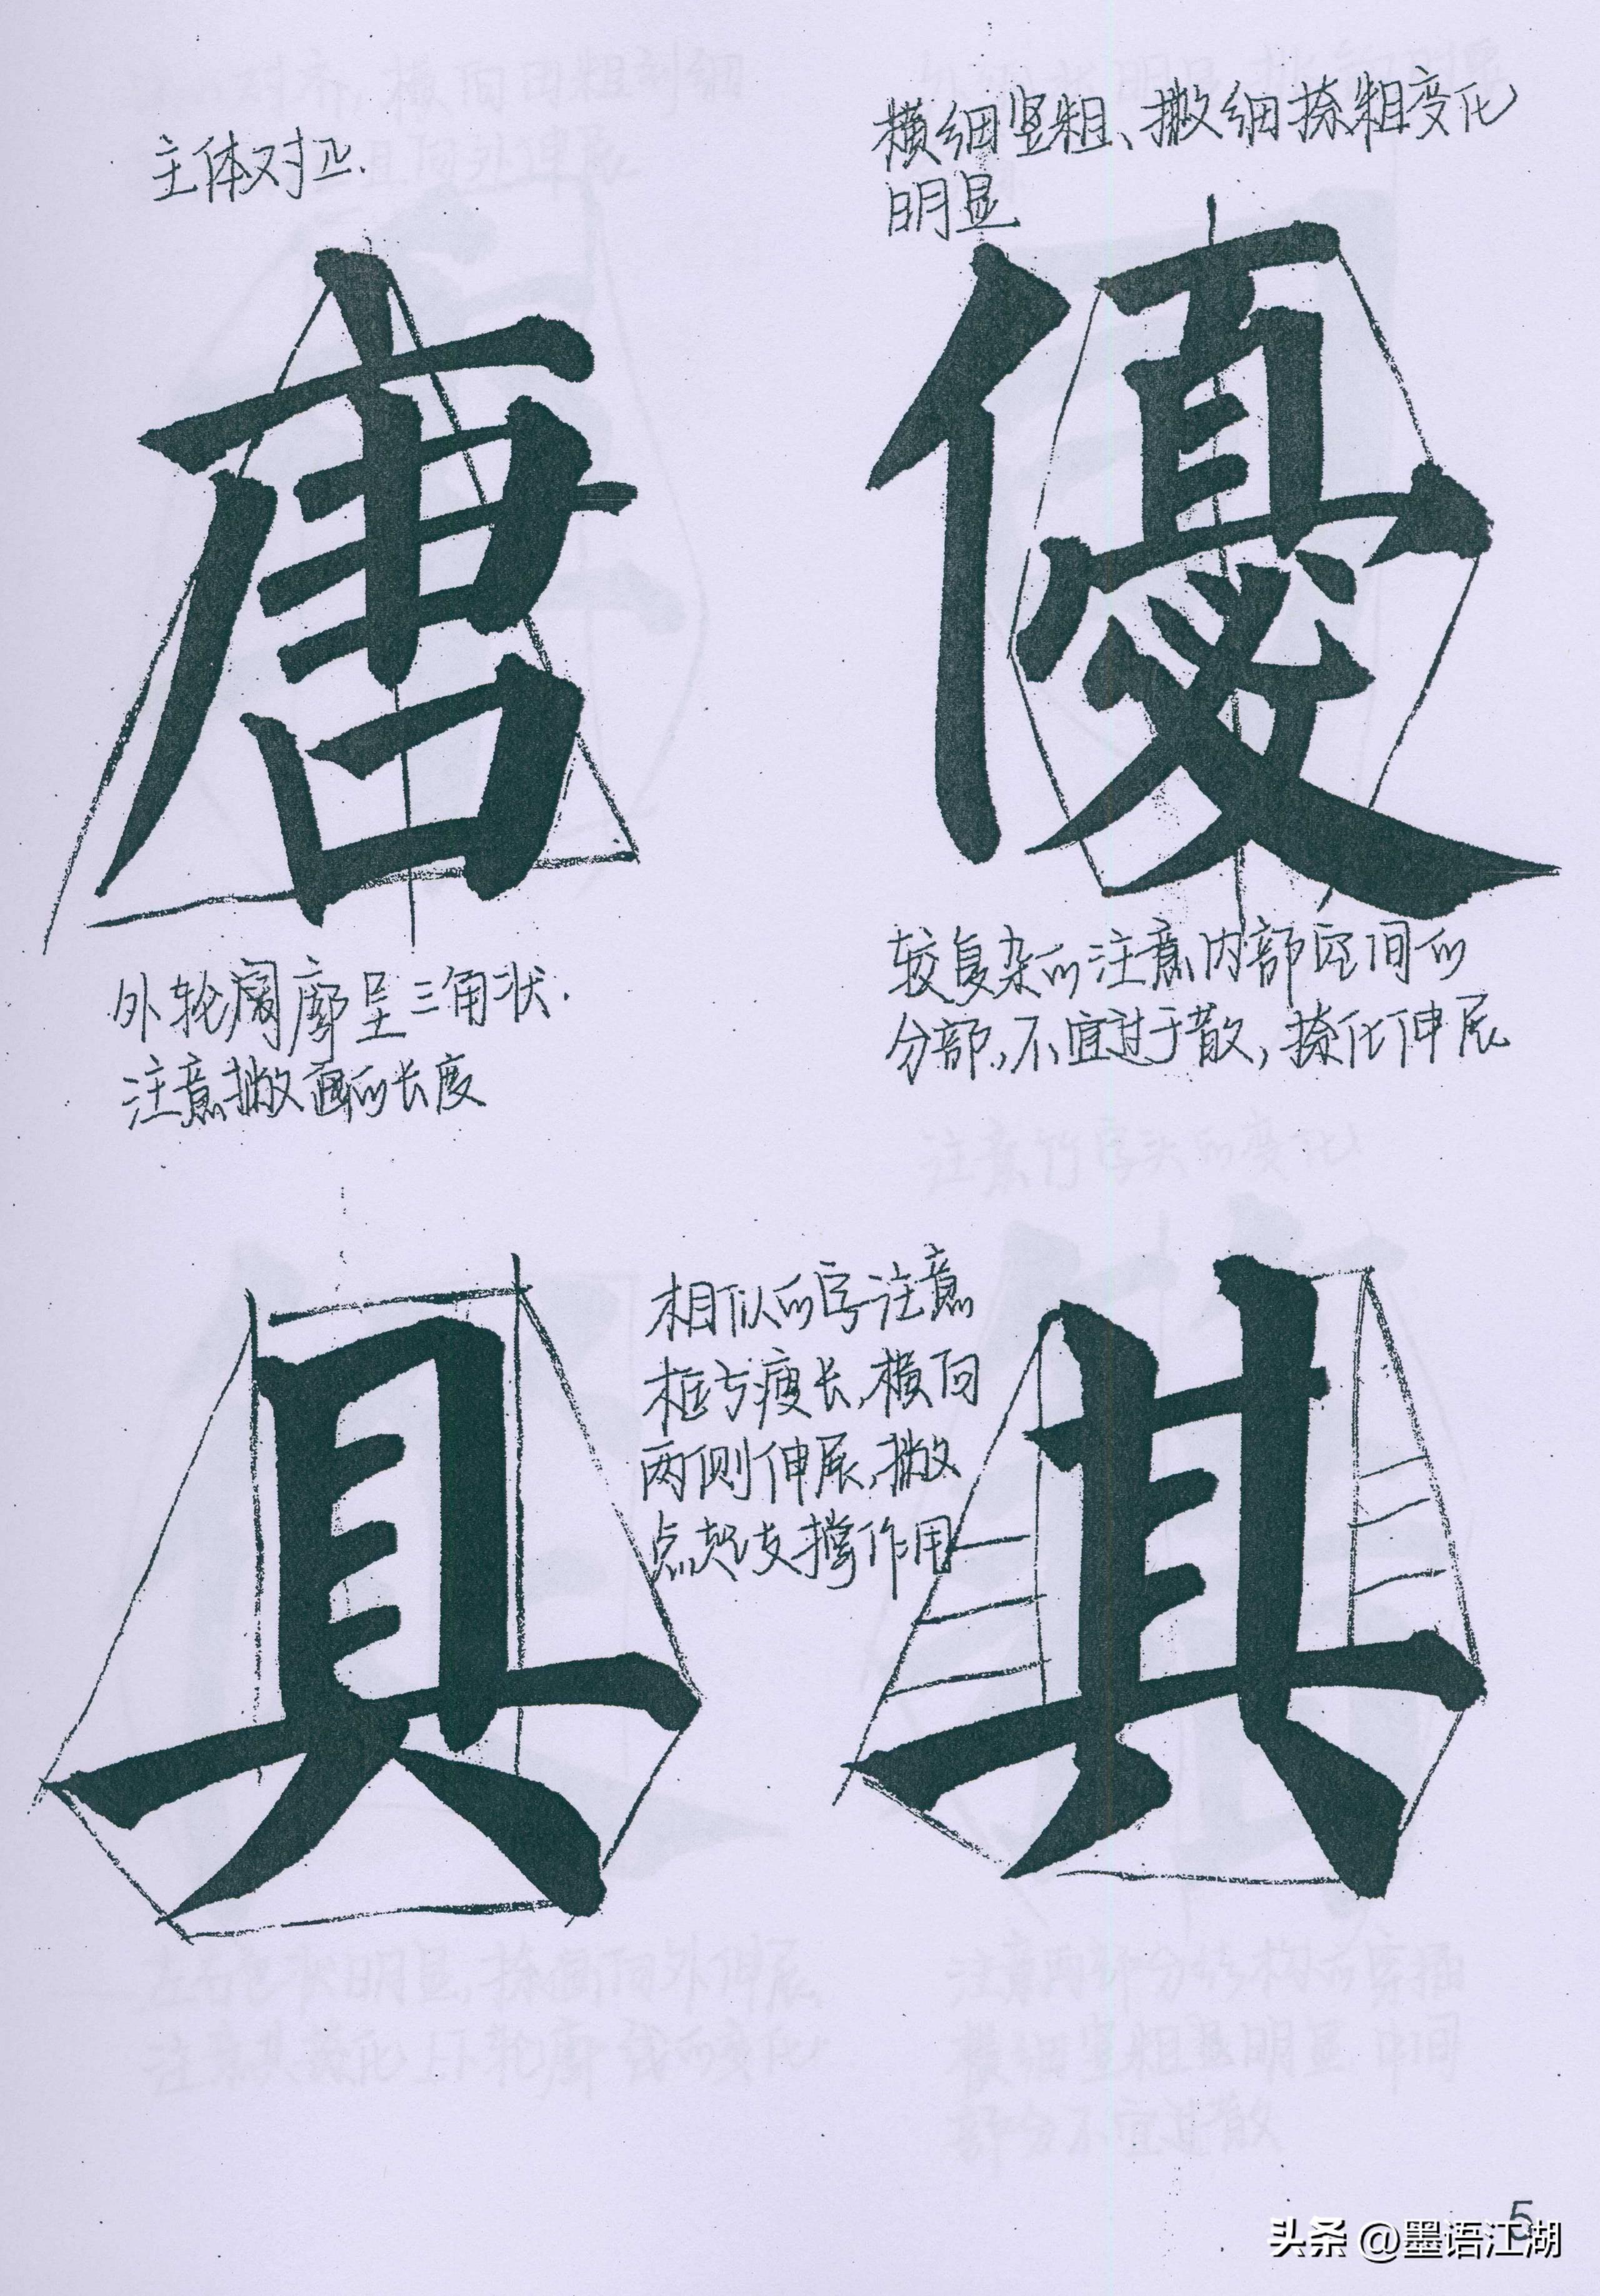 主体对正.
横细竖粗、撇细捺粗变化
明显
唐
優
外轮阔廓呈三角状.
注意撇画的长度
较复杂的注意内部空间的
分部,不宜过于散,捺化伸展
具
相似的字注意
框亏瘦长,横向
两侧伸展,撇
点起支撑作用
其
5
头条 @墨语江湖